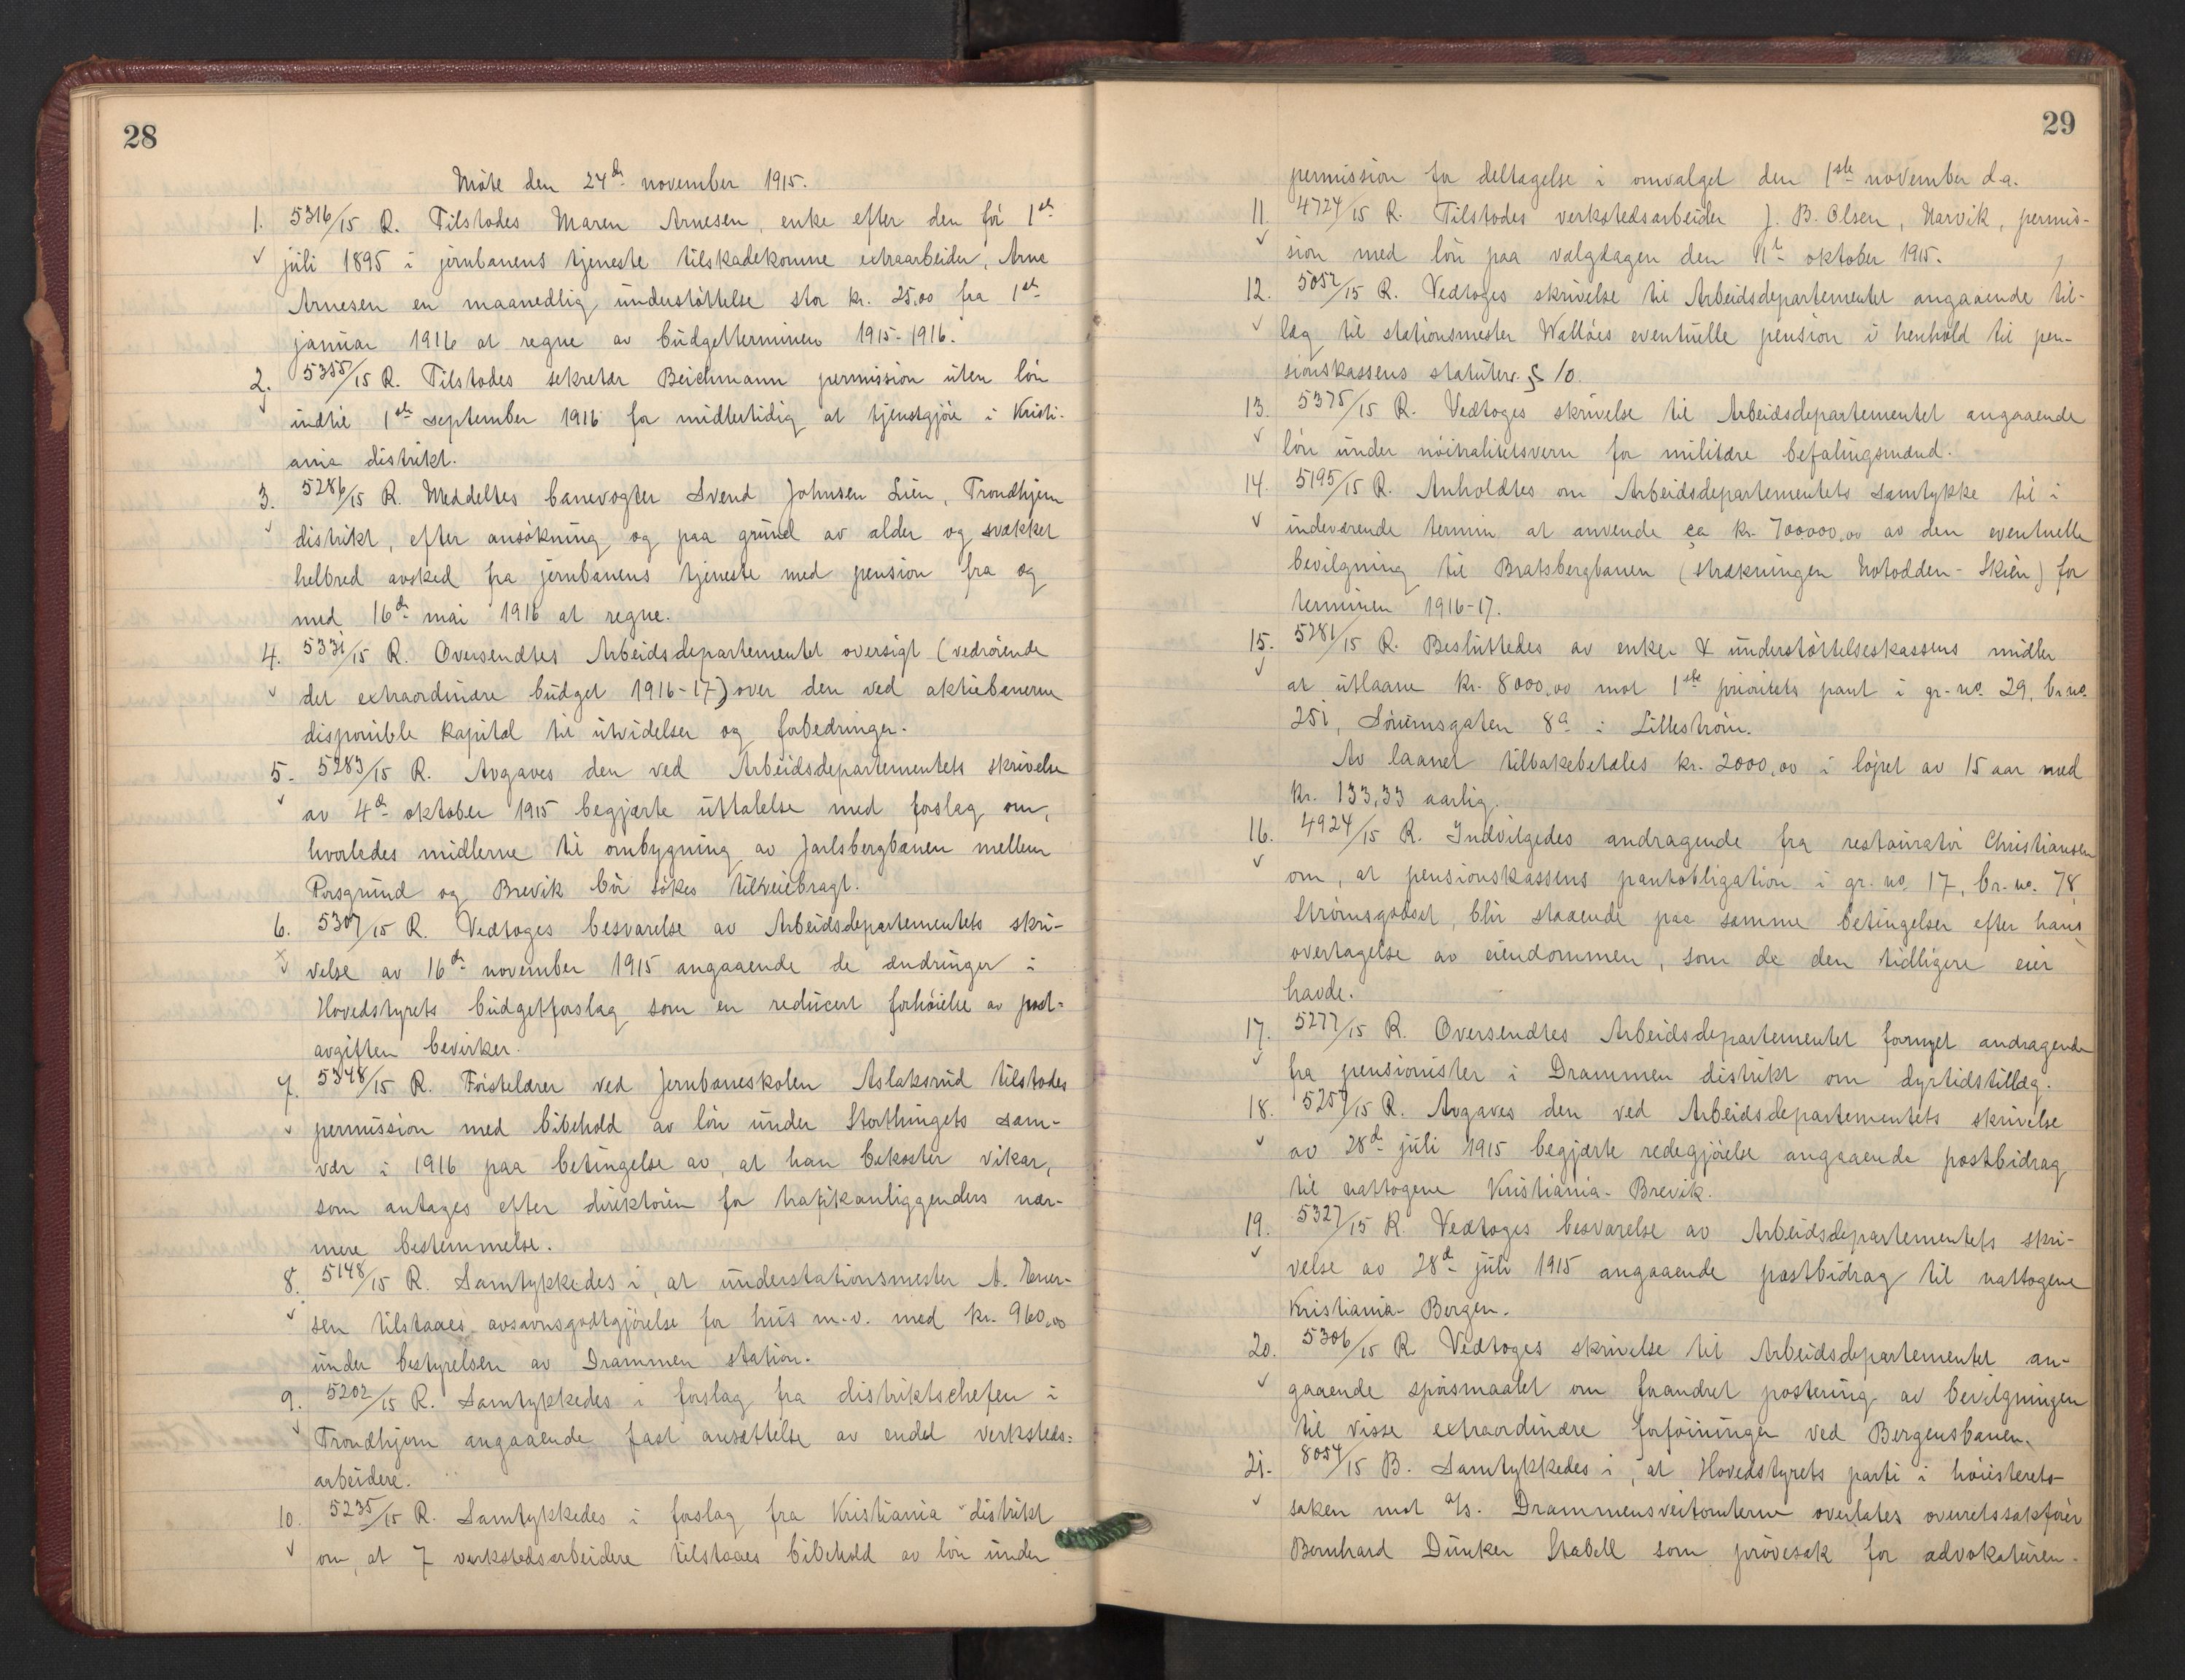 28
Møte den 24de november 1915.
1. 5316/15 R. Tilstodes Maren Arnesen, enke efter den før 1ste
juli 1895 i jernbanens tjeneste tilskadekomne extraarbeider, Arne
Arnesen en maanedlig understøttelse stor kr. 25,00 fra 1ste
januar 1916 at regne av budgetterminen 1915-1916.
2. 5355/15 R. Tilstodes sekretær Beichmann permission uten løn
indtil 1ste september 1916 for midlertidig at tjenstgjøre i Kristi-
ania distrikt.
3. 5286/15 R. Meddeltes banevogter Svend Johnsen Lien, Trondhjem
distrikt, efter ansøkning og paa grund av alder og svækket
helbred avsked fra jernbanens tjeneste med pension fra og
med 16de mai 1916 at regne.
4. 5331/15 R. Oversendtes Arbeidsdepartementet oversigt (vedrørende
det extraordinære budget 1916-17) over den ved aktiebanerne
disponible kapital til utvidelser og forbedringer.
5. 5283/15 R. Avgaves den ved Arbeidsdepartementets skrivelse
av 4de oktober 1915 begjærte uttalelse med forslag om,
hvorledes midlerne til ombygning av Jarlsbergbanen mellem
Porsgrund og Brevik bør søkes tilveiebragt.
6. 5307/15 R. Vedtoges besvarelse av Arbeidsdepartementets skri-
velse av 16de november 1915 angaaende de ændringer i
Hovedstyrets budgetforslag som en reducert forhøielse av post-
avgiften bevirker.
7. 5348/15 R. Førstelærer ved Jernbaneskolen Aslaksrud tilstodes
permission med bibehold av løn under Storthingets sam-
vær i 1916 paa betingelse av, at han bekoster vikar,
som antages efter direktøren for trafikanliggenders nær-
mere bestemmelse.
8. 5148/15 R. Samtykkedes i, at understationsmester A. Ener-
sen tilstaaes avsavnsgodtgjørelse for hus m.v. med kr. 960,00
under bestyrelsen av Drammen station.
9. 5202/15 R. Samtykkedes i forslag fra distriktschefen i
Trondhjem angaaende fast ansættelse av endel verksteds-
arbeidere.
10. 5235/15 R. Samtykkedes i forslag fra Kristiania distrikt
om, at 7 verkstedsarbeidere tilstaaes bibehold av løn under
29
permission for deltagelse i omvalget den 1ste november d.a.
11. 4724/15 R. Tilstodes verkstedsarbeider J. B. Olsen, Narvik, permis-
sion med løn paa valgdagen den 11te oktober 1915.
12. 5052/15 R. Vedtoges skrivelse til Arbeidsdepartementet angaaende til-
læg til stationsmester Walløes eventuelle pension i henhold til pen-
sionskassens statuter § 10.
13. 5375/15 R. Vedtoges skrivelse til Arbeidsdepartementet angaaende
løn under nøitralitetsvern for militære befalingsmænd.
14. 5195/15 R. Anholdtes om Arbeidsdepartementets samtykke til i
indeværende termin at anvende ca kr. 700000,00 av den eventuelle
bevilgning til Bratsbergbanen (strækningen Notodden-Skien) for
terminen 1916-17.
15. 5281/15 R. Besluttedes av enke & understøttelseskassens midler
at utlaane kr. 8000,00 mot 1ste prioritets pant i gr.-no. 29, br.no.
251, Sørumsgaten 8a i Lillestrøm.
Av laanet tilbakebetales kr. 2000,00 i løpet av 15 aar med
kr. 133,33 aarlig.
16. 4924/15 R. Indvilgedes andragende fra restauratør Christiansen
om, at pensionskassens pantobligation i gr. no. 17, br.-no. 78
Strømsgodset, blir staaende paa samme betingelser efter hans
overtagelse av eiendommen, som de den tidligere eier
havde.
17. 5277/15 R. Oversendtes Arbeidsdepartementet fornyet andragende
fra pensionister i Drammen distrikt om dyrtidstillæg.
18. 5259/15 R. Avgaves den ved Arbeidsdepartementets skrivelse
av 28de juli 1915 begjærte redegjørelse angaaende postbidrag
til nattogene Kristiania-Brevik.
19. 5327/15 R. Vedtoges besvarelse av Arbeidsdepartementets skri-
velse av 28de juli 1915 angaaende postbidrag til nattogene
Kristiania-Bergen.
20. 5306/15 R. Vedtoges skrivelse til Arbeidsdepartementet an-
gaaende spørsmaalet om forandret postering av bevilgningen
til visse extraordinære forføininger ved Bergensbanen.
21. 8054/15 B. Samtykkedes i, at Hovedstyrets parti i høiesterets-
saken mot A/S. Drammensveitomterne overlates overretssakfører
Bernhard Dunker Stabell som prøvesak for advokaturen.